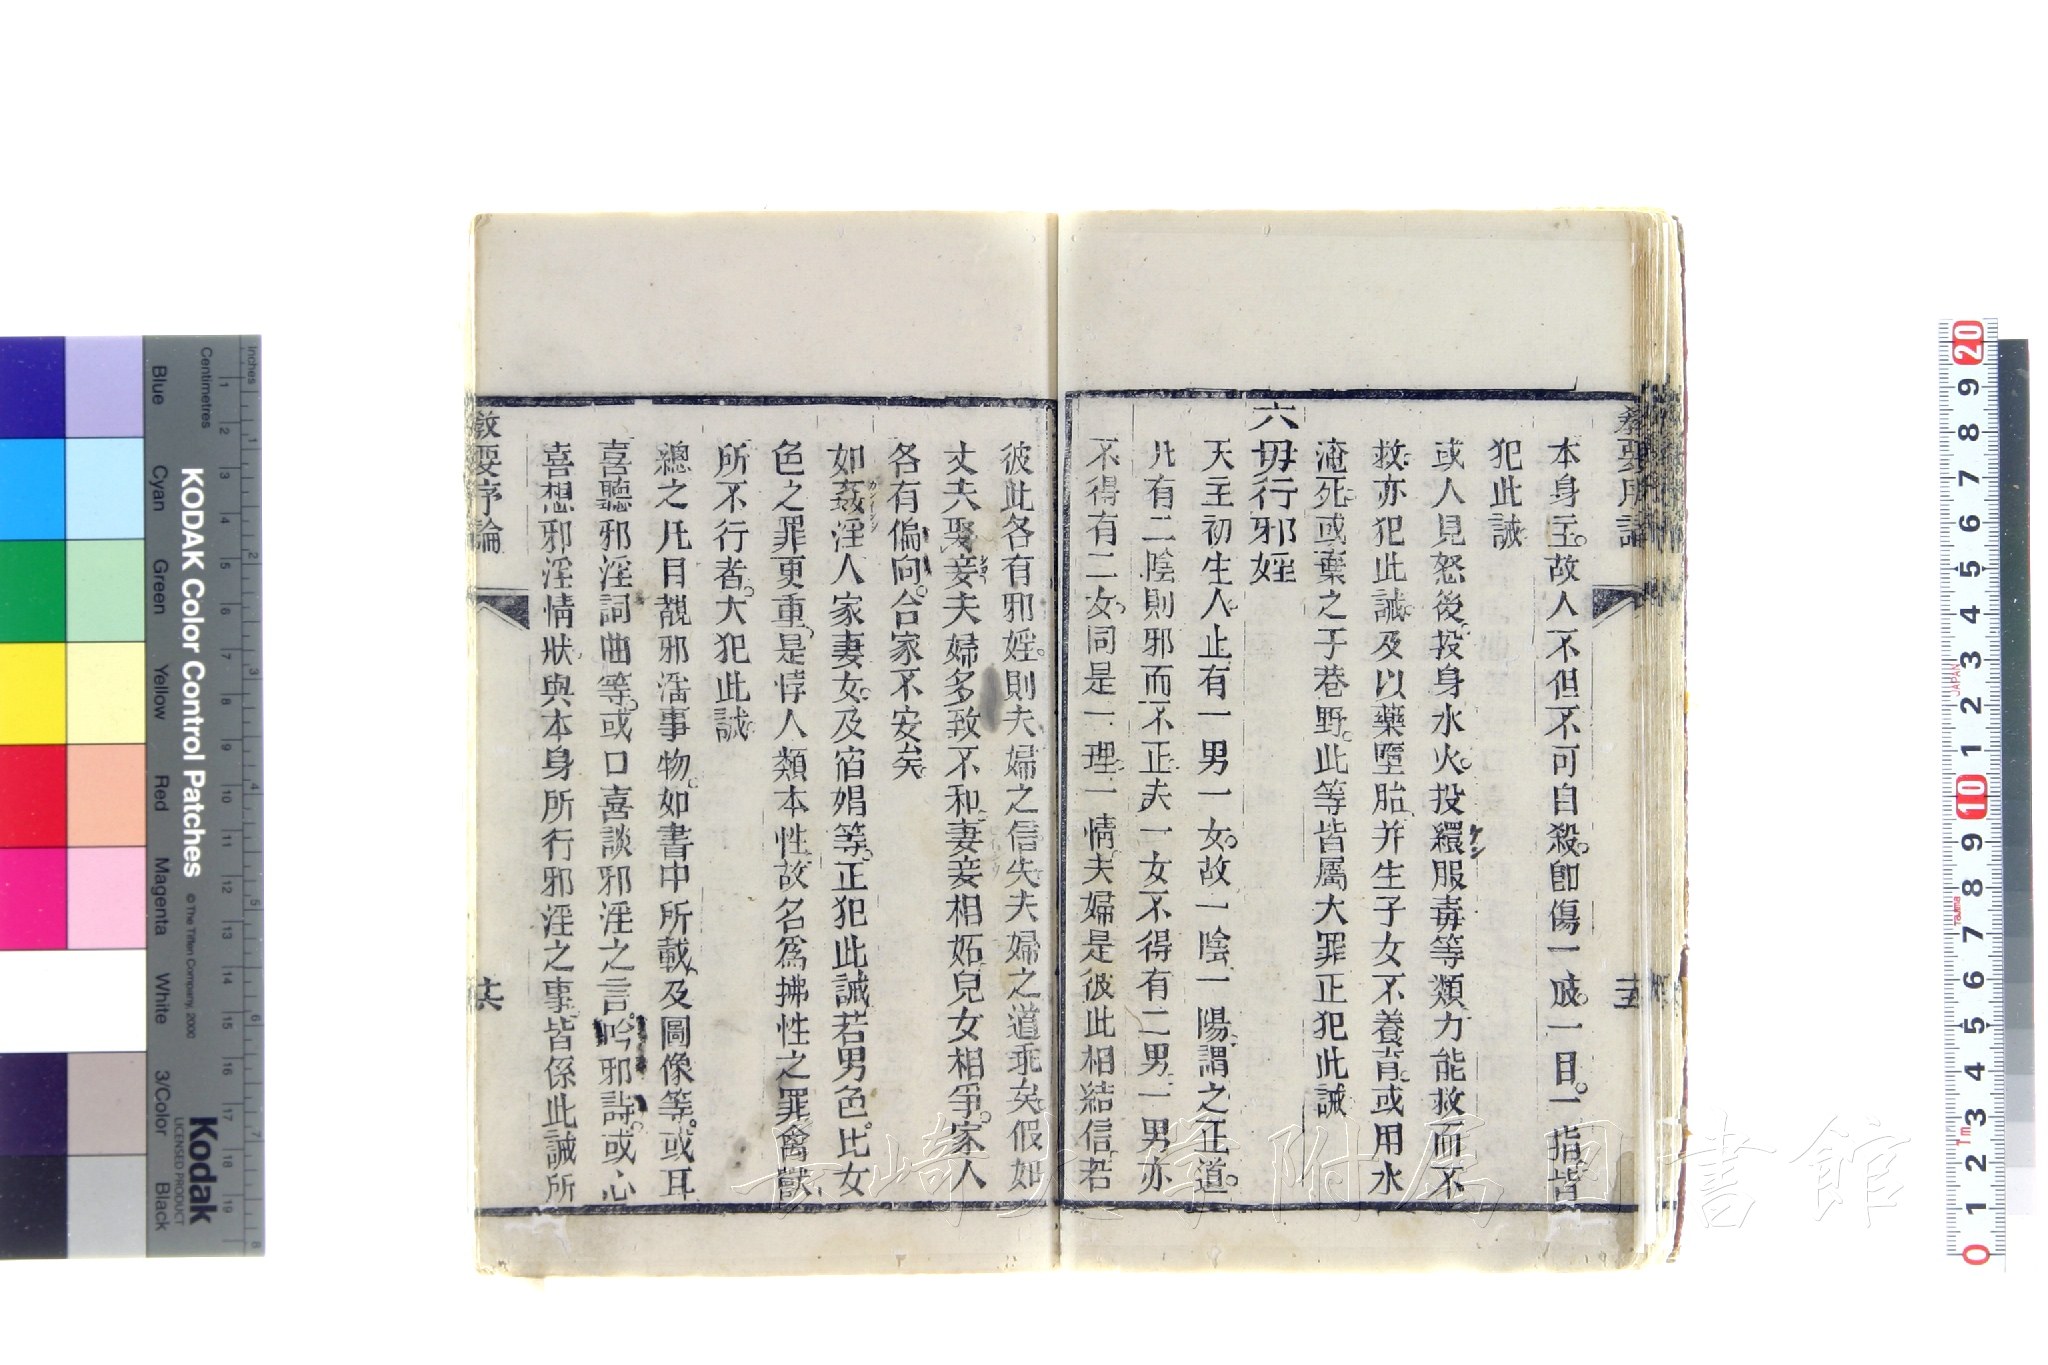 本身主。故人不但不可自殺。卽傷一肢。一目。一指。皆
犯此誡
或人見怒後。投身水火。投繯服毒等類。力能救而不
救。亦犯此誡。及以藥墮胎。并生子女不養育。或用水
淹死。或棄之于巷野。此等皆屬大罪。正犯此誡
六毋行邪婬
天主初生人。止有一男一女。故一陰一陽。謂之正道。
凡有二陰。則邪而不正。夫一女不得有二男。一男亦
不得有二女。同是一理。一情。夫婦是彼此相結信。若
彼此各有邪婬。則夫婦之信失。夫婦之道乖矣。假如
丈夫娶妾。夫婦多致不和。妻妾相妬。兒女相爭。家人
各有偏向。合家不安矣。
如姦淫人家妻女。及宿娼等。正犯此誡。若男色。比女
色之罪更重。是悖人類本性。故名爲拂性之罪。禽獸
所不行者。大犯此誡
總之凡目覩邪淫事物。如書中所載。及圖像等。或耳
喜聽邪淫詞曲等。或口喜談邪淫之言。吟邪詩。或心
喜想邪淫情狀。與本身所行邪淫之事。皆係此誡所
教要序論
KODAK Color Control Patches
© The Tiffen Company, 2000
Kodak
LICENSED PRODUCT
Centimetres
Inches
Blue
Cyan
Green
Yellow
Red
Magenta
White
3/Color
Black
JAPAN
長崎大学附属図書館